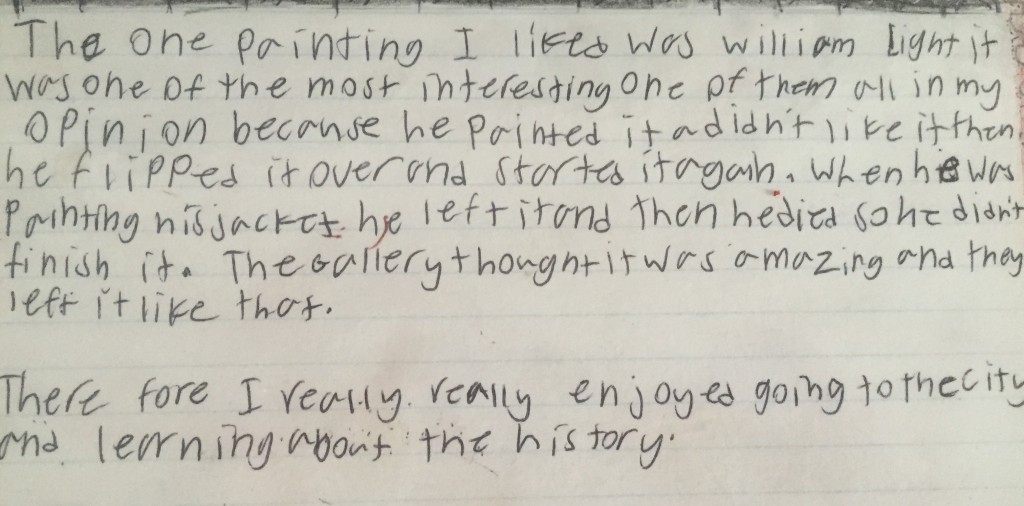 The one painting I liked was william Light it
was one of the most interesting one of them all in my
opinion because he painted it a didn't like it then
he flipped it over and started it again. When he was
painting his jacket he left it and then he died so he didn't
finish it. The Gallery thought it was amazing and they
left it like that.
There fore I really really enjoyed going to the city
and learning about the history.